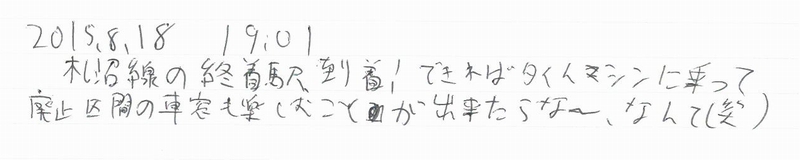 2015.8.18　19:01
札沼線の終着駅、到着！できればタイムマシンに乗って
廃止区間の車窓も楽しむことが出来たらな〜、なんて(笑)